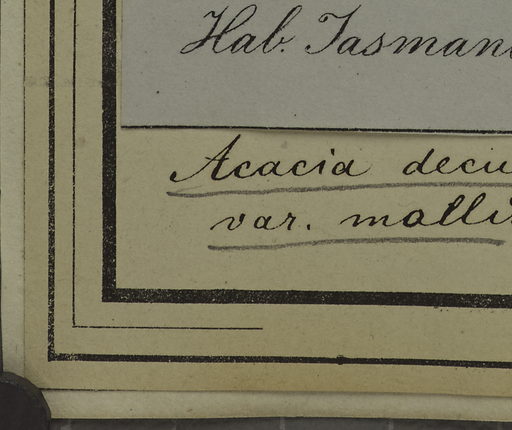 Hab. Tasman
Acacia decu
var. molli